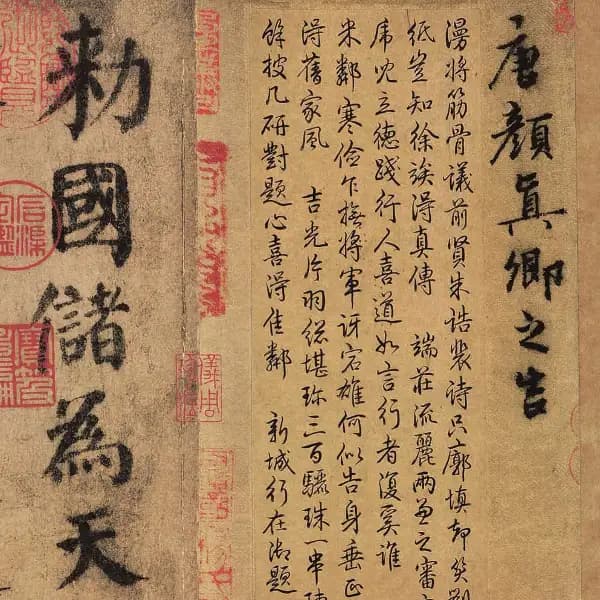 唐顏真卿之告
漫將筋骨議前賢朱誥裴詩只廓填却笑
紙豈知徐得真傳 端莊流麗兩兼之審
立德踐行人喜道如言行者復奚誰
米鄰寒儉乍將軍訝宕雄何似告身垂正
得舊家風 吉光片羽總堪珍三百驪珠一串
餘披几研對題心喜得佳鄰 新城行在御題
勅國儲為天